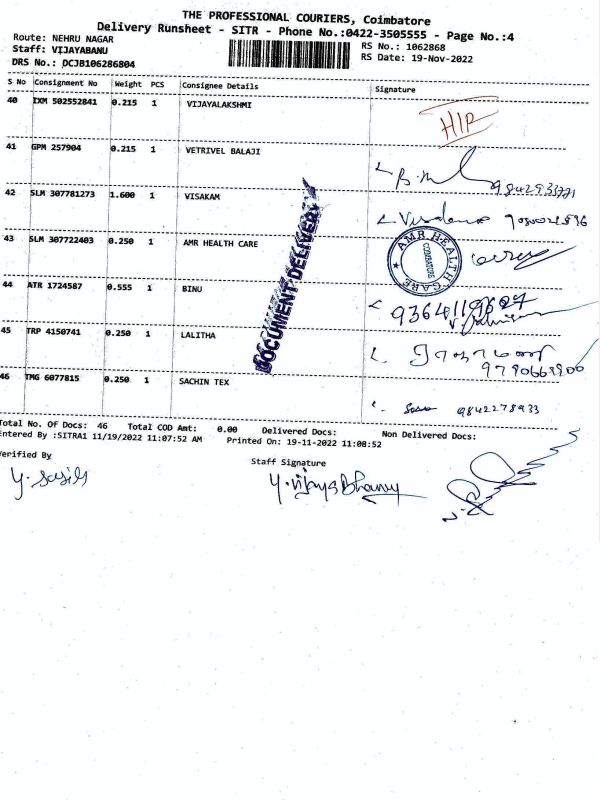 THE PROFESSIONAL COURIERS, Coimbatore
Delivery Runsheet - SITR - Phone No.:0422-3505555 - Page No.:4
Route: NEHRU NAGAR
RS No.: 1062868
Staff: VIJAYABANU
RS Date: 19-Nov-2022
DRS No.: DCJB106286804
S No Consignment No Weight PCS Consignee Details Signature
40 IXM 502552841 0.215 1 VIJAYALAKSHMI
41 GPM 257904 0.215 1 VETRIVEL BALAJI
9842933771
42 SLM 307781273 1.600 1 VISAKAM
43 SLM 307722403 0.250 1 AMR HEALTH CARE
AMR HEALTH CARE
COIMBATORE
44 ATR 1724587 0.555 1 BINU
45 TRP 4150741 0.250 1 LALITHA
46 TMG 6077815 0.250 1 SACHIN TEX
9842278933
DOCUMENT DELIVERY
Total No. Of Docs: 46 Total COD Amt: 0.00 Delivered Docs: Non Delivered Docs:
Entered By :SITRA1 11/19/2022 11:07:52 AM Printed On: 19-11-2022 11:08:52
Verified By
Staff Signature